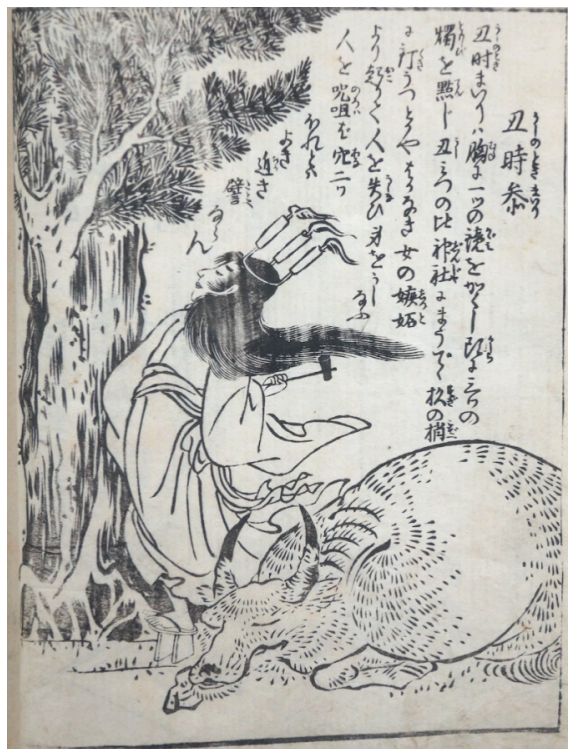 丑時参
丑时まいりハ胸に一ツの鏡をかくし頭に三つの
燭を點じ丑みつの比神社にまうでゝ杉の梢
に釘うつとかやはかなき女の嫉妬
より起りて人を失ひ身をうし
なふ
人を呪咀ば穴二ツ
ほれとハ
よき
近き
譬
ならん